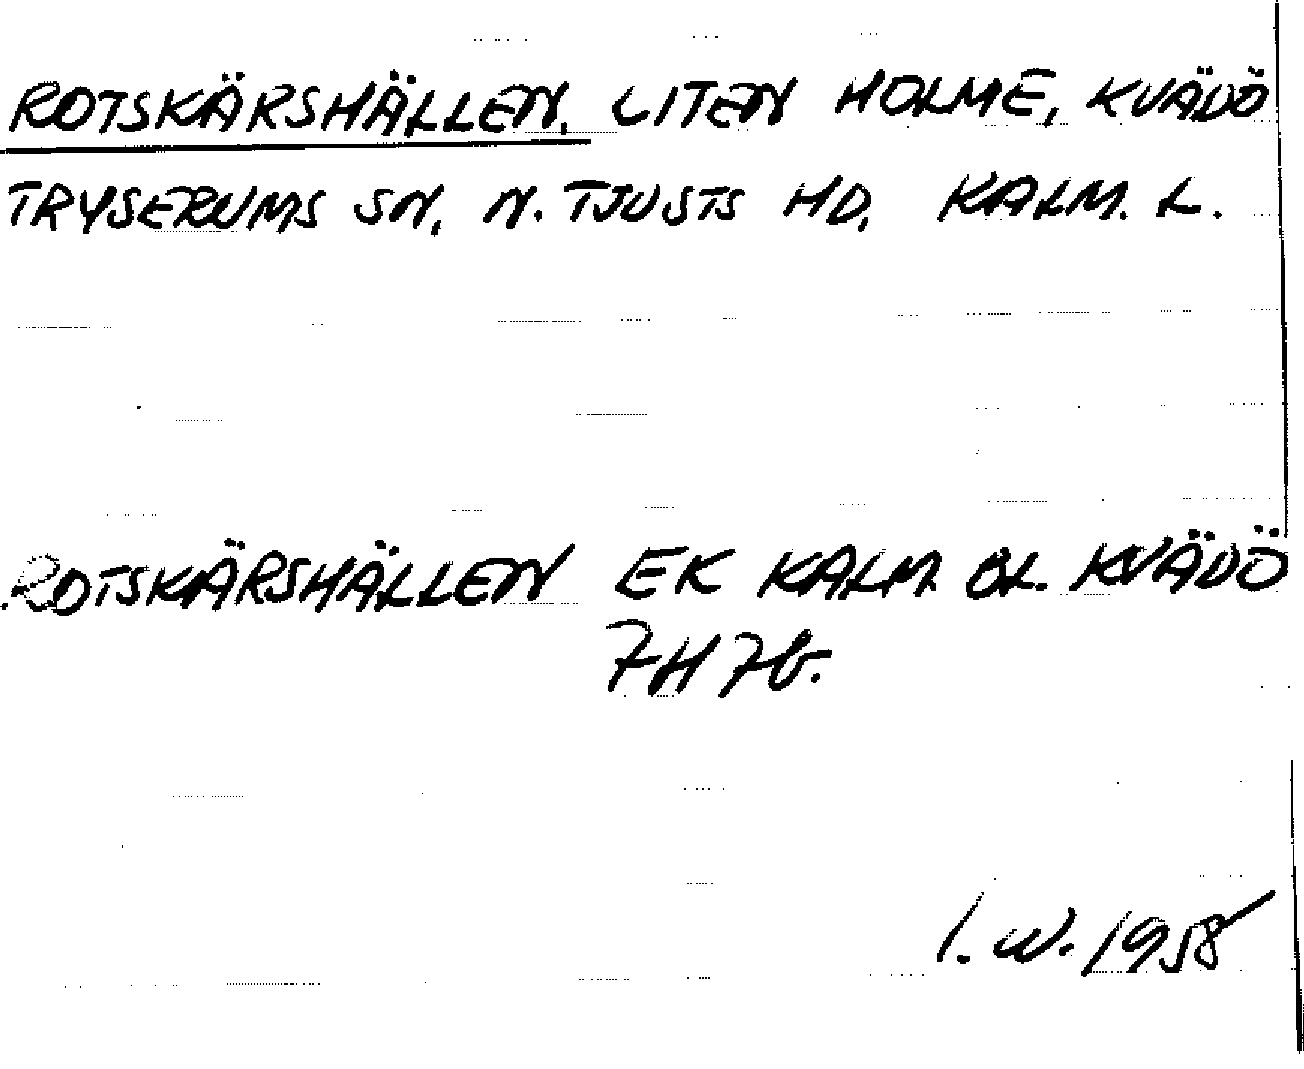 ROTSKÄRSHÄLLEN, LITEN HOLME, KVÄDÖ
TRYSERUMS SN, N. TJUSTS HD, KALM. L.
ROTSKÄRSHÄLLEN EK KALM. ÖL. KVÄDÖ
7H 7b.
I. W. 1958